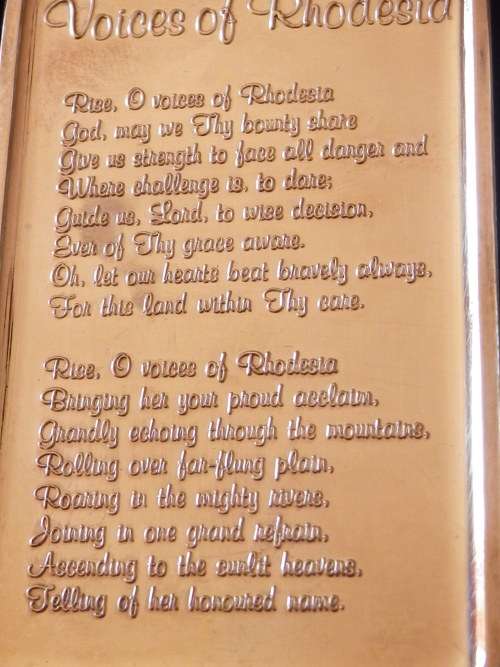 Voices of Rhodesia
Rise, O voices of Rhodesia
God, may we Thy bounty share
Give us strength to face all danger and
Where challenge is, to dare;
Guide us, Lord, to wise decision,
Ever of Thy grace aware.
Oh, let our hearts beat bravely always,
For this land within Thy care.
Rise, O voices of Rhodesia
Bringing her your proud acclaim,
Grandly echoing through the mountains,
Rolling over far-flung plain,
Roaring in the mighty rivers,
Joining in one grand refrain,
Ascending to the sunlit heavens,
Telling of her honoured name.